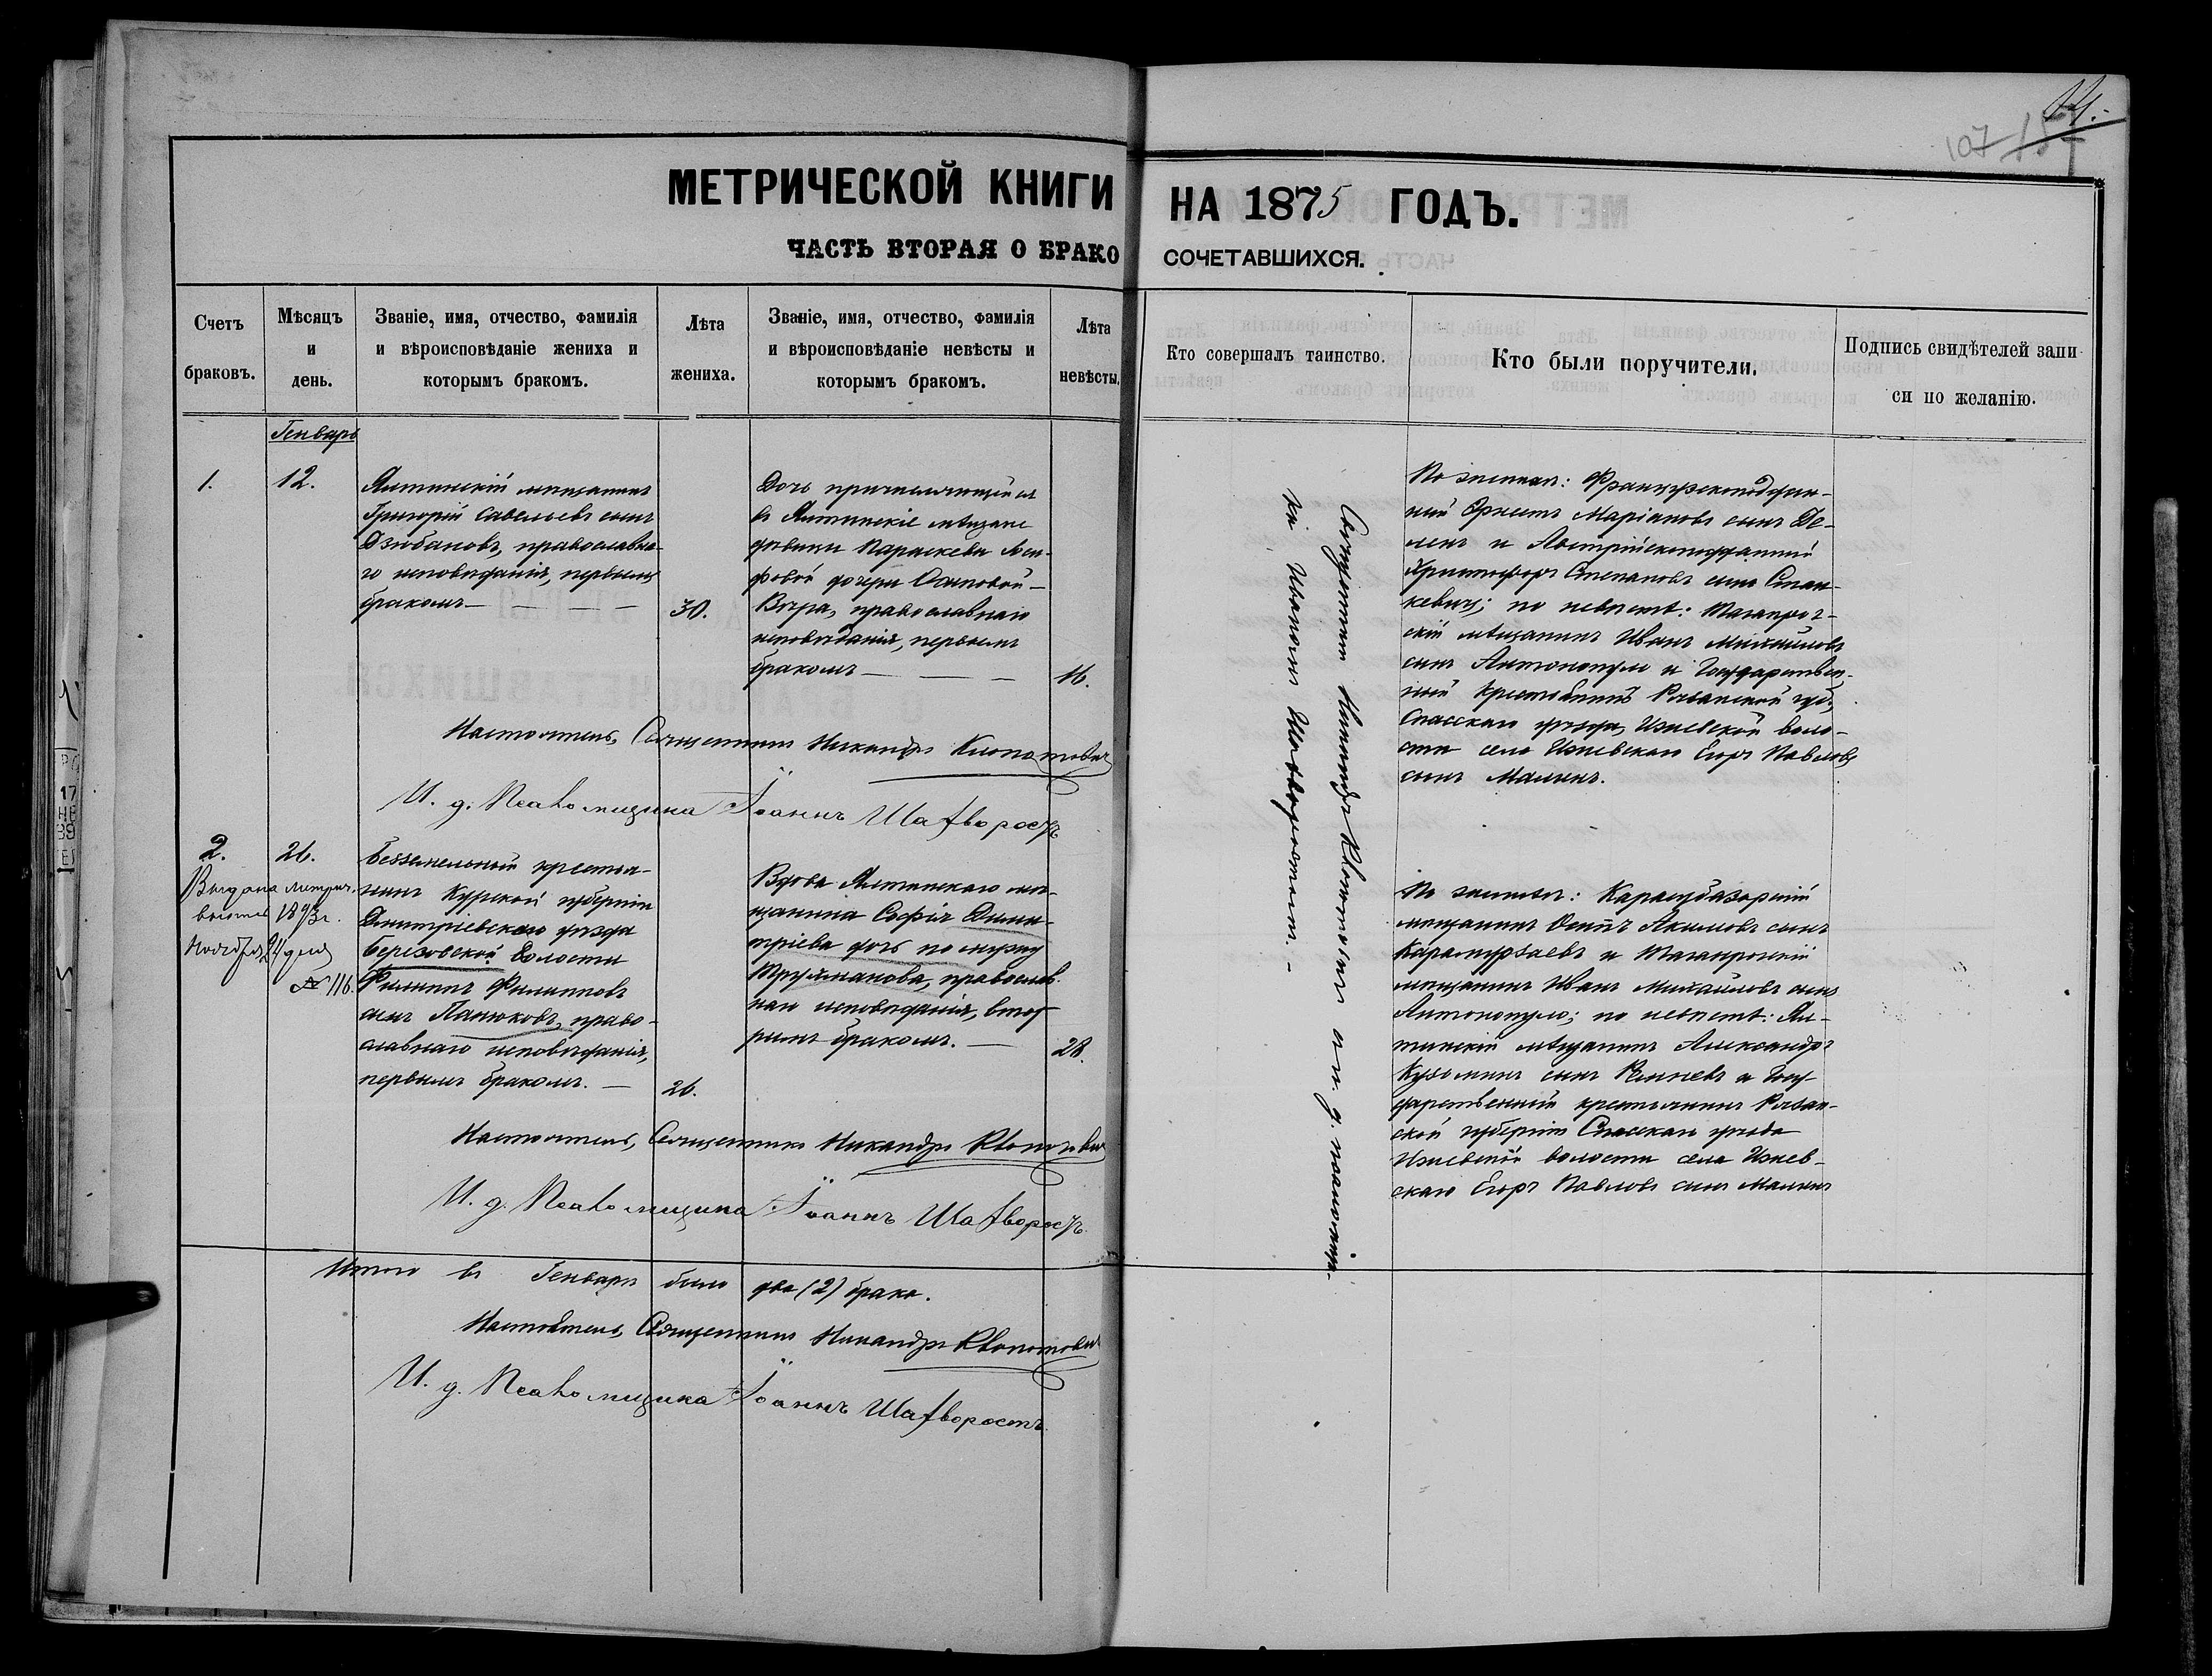 107
МЕТРИЧЕСКОЙ КНИГИ НА 1875 ГОДЪ.
ЧАСТЬ ВТОРАЯ О БРАКОСОЧЕТАВШИХСЯ.
Счетъ браковъ.
Мѣсяцъ и день.
Званіе, имя, отчество, фамилія и вѣроисповѣданіе жениха и которымъ бракомъ.
Лѣта жениха.
Званіе, имя, отчество, фамилія и вѣроисповѣданіе невѣсты и которымъ бракомъ.
Лѣта невѣсты.
Кто совершалъ таинство.
Кто были поручители.
Подпись свидѣтелей записи по желанію.
Генварь
1.
12.
Ялтинскій мѣщанинъ
Григорій Савельевъ сынъ
Дзюбановъ, православна-
го исповѣданія, первымъ
бракомъ
30.
Дочь причисляющейся
въ Ялтинскіе мѣщане
дѣвицы Параскевы Іоси-
фовой дочери Осиповой
Вѣра, православнаго
исповѣданія, первымъ
бракомъ
16.
По женихѣ: Французскоподдан-
ный Эрнестъ Маріановъ сынъ Де-
ленъ и Австрійскоподданный
Христофоръ Степановъ сынъ Стан-
кевичъ; по невѣстѣ: Таганрог-
скій мѣщанинъ Иванъ Михайловъ
сынъ Антонопуло и Государствен-
ный крестьянинъ Рязанской губ.
Спасскаго уѣзда, Ижевской воло-
сти села Ижевскаго Егоръ Павловъ
сынъ Малинъ.
Настоятель, Священникъ Никандръ Клопотовичъ
И. д. Псаломщика Іоаннъ Шатворостъ
2.
26.
Выдана метрич.
выпись 1893 г.
Ноября 24 дня
№ 116.
Безземельный крестья-
нинъ Курской губерніи
Дмитріевскаго уѣзда
Березовской волости
Филиппъ Филипповъ
сынъ Панюковъ, право-
славнаго исповѣданія,
первымъ бракомъ.
26.
Вдова Ялтинскаго мѣ-
щанина Софія Дими-
тріева дочь по мужу
Трухманова, православ.
наго исповѣданія, вто-
рымъ бракомъ.
28.
По женихѣ: Карасубазарскій
мѣщанинъ Осипъ Акимовъ сынъ
Карамурзаевъ и Таганрогскій
мѣщанинъ Иванъ Михайловъ сынъ
Антонопуло; по невѣстѣ: Ял-
тинскій мѣщанинъ Александръ
Кузьминъ сынъ и Госу-
дарственный крестьянинъ Рязан-
ской губерніи Спасскаго уѣзда
Ижевской волости села Ижев-
скаго Егоръ Павловъ сынъ Малинъ
Настоятель, Священникъ Никандръ Клопотовичъ
И. д. Псаломщика Іоаннъ Шатворостъ
Священникъ Никандръ Клопотовичъ и и. д. псаломщи-
ка Иваномъ Шатворостомъ.
Итого въ Генварѣ было два (2) брака.
Настоятель, Священникъ Никандръ Клопотовичъ
И. д. Псаломщика Іоаннъ Шатворостъ.